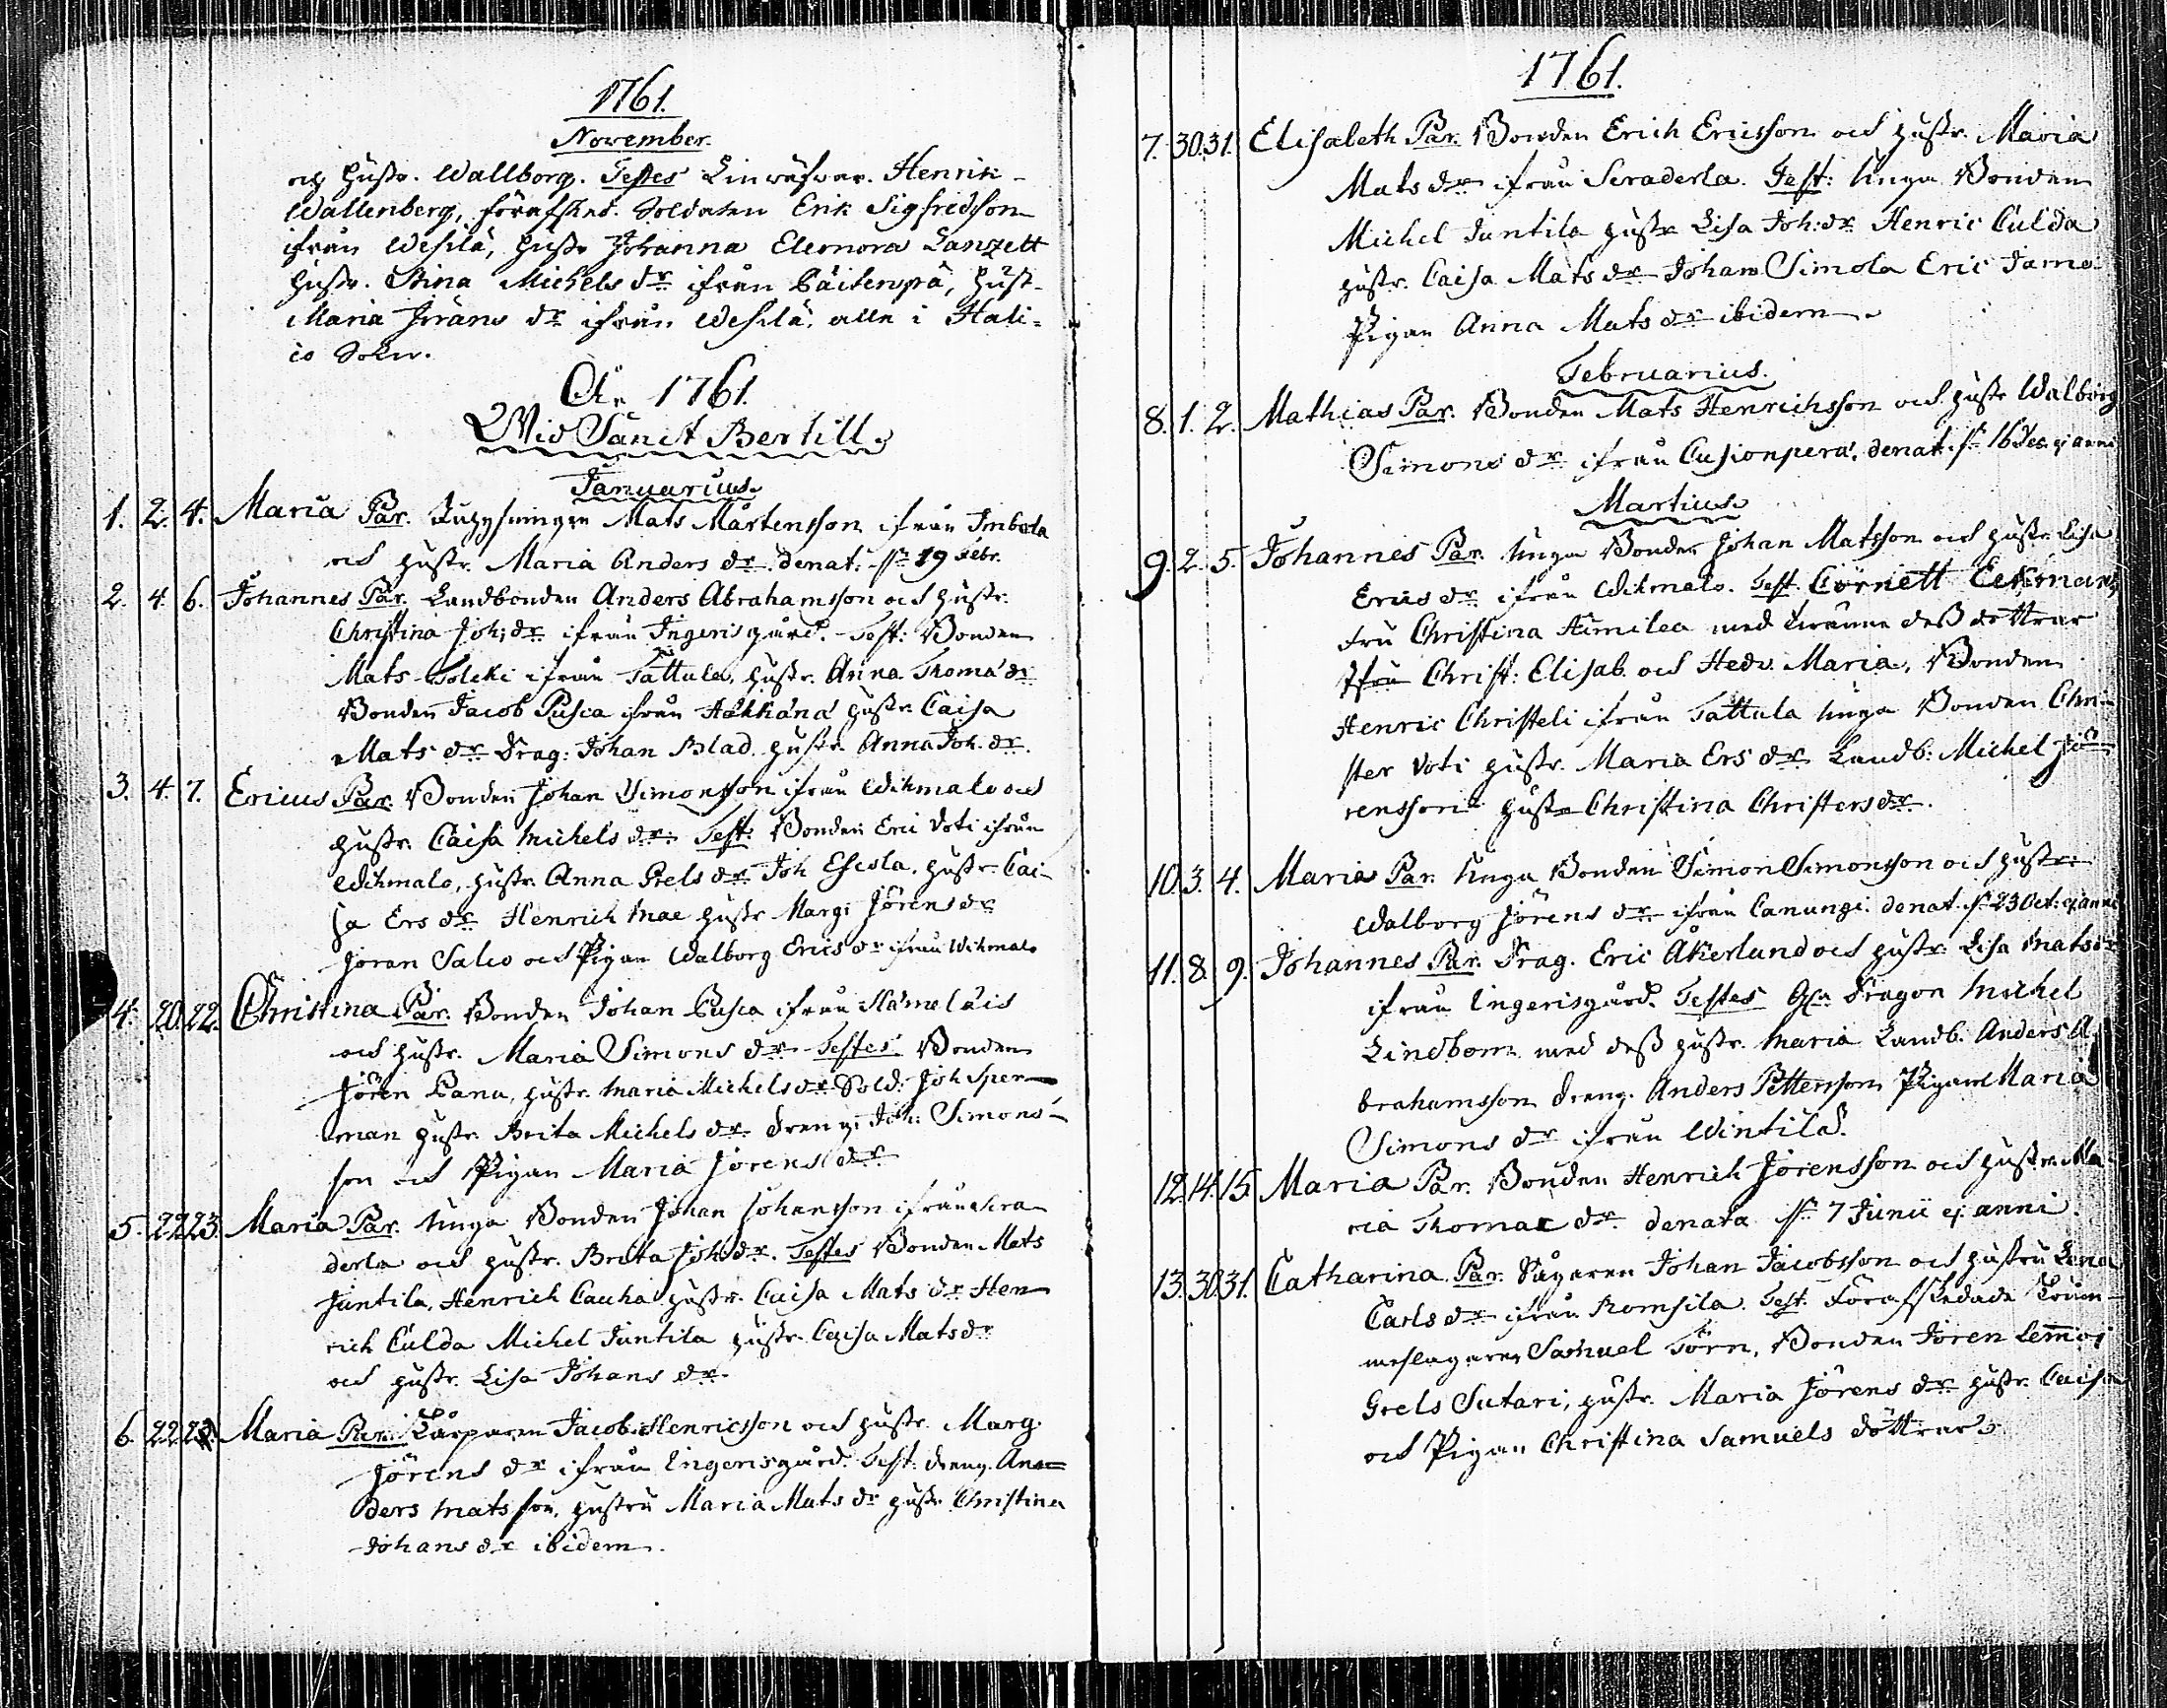 1761.
November.
och hustr. Wallborg. Testes Henrik
Wallenberg, förafsked. Soldaten Erik Sigfredsson
ifrån Wesilä, hustr Johanna Eleonora Lanzett
hustr. Stina Michels dr ifrån Päitenpä, hust.
Maria Jöräns dr ifrån Wesilä, alla i Hali-
co Sokn.
A:o 1761.
Wid Sanct Bertill.
Januarius.
1. 2. 4. Maria Par. Mats Mårtensson ifrån Imbola
och hustr. Maria Anders dr. denat. 19 Febr.
2. 4. 6. Johannes Par. Landbonden Anders Abrahamsson och hustr.
Christina Joh: dr ifrån Ingerisgård. Test: Bonden
Mats Toleki ifrån Tattula, hustr. Anna Thomæ dr
Bonden Jacob Pusca ifrån Häkkänä hustr. Caisa
Mats dr Drag: Johan Blad. hustr. Anna Joh. dr.
3. 4. 7. Ericus Par. Bonden Johan Simonsson ifrån Wihmalo och
hustr. Caisa Michels dr: Test: Bonden Eric Voti ifrån
Wihmalo, hustr. Anna Grels dr Joh Escola, hustr. Cai-
sa Ers dr Henrich Mae hustr Marg: Jörens dr
Jöran Salco och Pigan Walborg Erics dr ifrån Wihmalo
4. 20. 22. Christina Par. Bonden Johan Pusca ifrån Hämeläis
och hustr. Maria Simons dr Testes Bonden
Jören Pana, hustr. Maria Michels dr Sold: Joh Sper-
man hustr Brita Michels dr. dreng: Joh: Simons-
son och Pigan Maria Jörens dr
5. 22 23. Maria Par. Unga Bonden Johan Johansson ifrån Scra-
derla och hustr. Brita Joh: dr. Testes Bonden Mats
Juntila, Henrich Cauha hustr. Caisa Mats dr Hen-
rich Culda Michel Juntila hustr. Caisa Mats dr
och hustr. Lisa Johans dr
6. 22 23. Maria Par. Jacob Henricsson och hustr. Marg.
Jörens dr ifrån Ingerisgård. Test: dreng. An-
ders Matsson, hustru Maria Mats dr hustr Christina
Johans dr ibidem.
1761.
7. 30. 31. Elisabeth Par. Bonden Erich Ericsson och hustr. Maria
Mats dr ifrån Scraderla. Test: Unga Bonden
Michel Juntila hustr Lisa Joh: dr Henric Culda
hustr. Caisa Mats dr Johan Simola Eric
Pigan Anna Mats dr ibidem.
Februarius.
8. 1. 2. Mathias Par. Bonden Mats Henrichsson och hustr Walborg
Simons dr ifrån Cusionperä, denat. 16 Dec. ej. anni
Martius.
9. 2. 5. Johannes Par. Unga Bonden Johan Matsson och hustr. Lisa
Erics dr ifrån Wihmalo. Test. Cornett Eekman,
Fru Christina Aimilea med dess döttrar
Christ: Elisab. och Hedv. Maria, Bonden
Henric Christeli ifrån Tattula Unga Bonden Chri-
ster Voti hustr. Maria Ers dr Landb: Michel Jö-
rensson hustr Christina Christers dr.
10. 3. 4. Maria Par. Unga Bonden Simon Simonsson och hustr.
Walborg Jörens dr ifrån Canungi. denat. 23 Oct: ej anni
11. 8. 9. Johannes Par. Drag. Eric Åkerlund och hustr. Lisa Mats dr
ifrån Ingerisgård. Testes Dragon Michel
Lindbom med dess hustr. Maria Landb. Anders A-
brahamsson dreng. Anders Pettersson Pigan Maria
Simons dr ifrån Wintilä.
12. 14. 15 Maria Par. Bonden Henrich Jörensson och hustr. Ma-
ria Thomae dr denata 7 Junii ej. anni.
13. 30. 31. Catharina Par. Sågaren Johan Jacobsson och hustru Lena
Carls dr ifrån Romsila. Test. Förafskedade Trum-
meslagaren Samuel Törn, Bonden Jören Lemmoi
Grels Sutari, hustr. Maria Jörens dr hustr. Caisa
och Pigan Christina Samuels döttrar